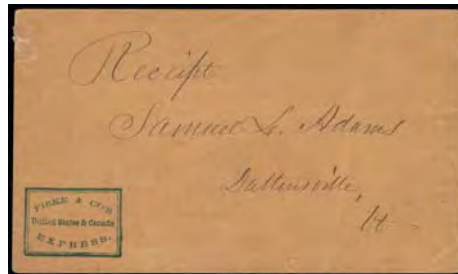 Receipt
Samuel L. Adams
Guttinsville,
Vt
FISKE & CO'S
United States & Canada
EXPRESS.